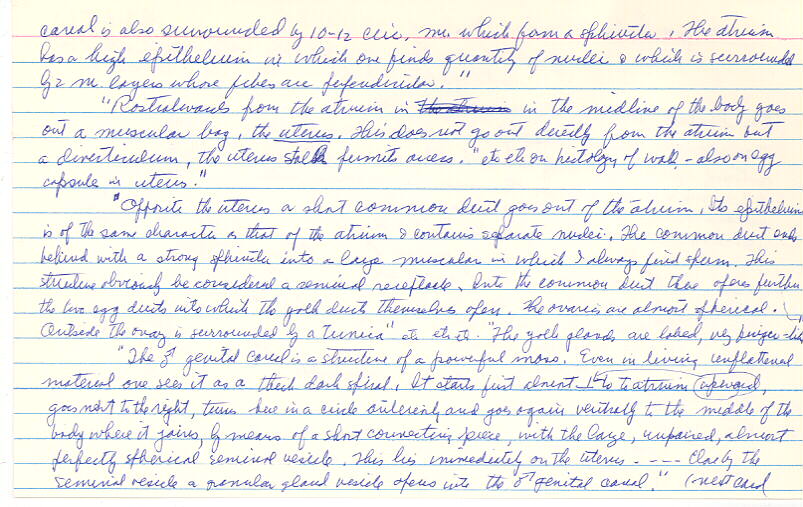 canal is also surrounded by 10-12 circ. m. which form a sphincter. The atrium
has a high epithelium in which one finds quantity of nuclei & which is surrounded
by 2 m. layers whose fibes are perpendicular."
"Rostralwards from the atrium in the atrium in the midline of the body goes
out a muscular bag, the uterus. This does not go out directly from the atrium but
a diverticulum, the uterus stalk permits access." etc etc on histology of wall - also on egg
capsule in uterus."
"Opposite the uterus a short common duct goes out of the atrium. Its epithelium
is of the same character as that of the atrium & contains separate nuclei. The common duct ends
behind with a strong sphincter into a large muscular in which I always find sperm. This
structure obviously be considered a seminal receptacle. Into the common duct there opens further
the two egg ducts into which the yolk ducts themselves open. The ovaries are almost spherical.
Outside the ovary is surrounded by a tunica" etc etc etc. "The yolk glands are lobed, very finger-like
"The ♂ genital canal is a structure of a powerful mass. Even in living unflattened
material one sees it as a thick dark spiral. It starts first almost ⊥ to atrium upward,
goes next to the right, turns here in a circle anteriorly and goes again ventrally to the middle of the
body where it joins, by means of a short connecting piece, with the large, unpaired, almost
perfectly spherical seminal vesicle. This lies immediately on the uterus - - - - Close by the
seminal vesicle a granular gland vesicle opens into the ♂ genital canal." (next card